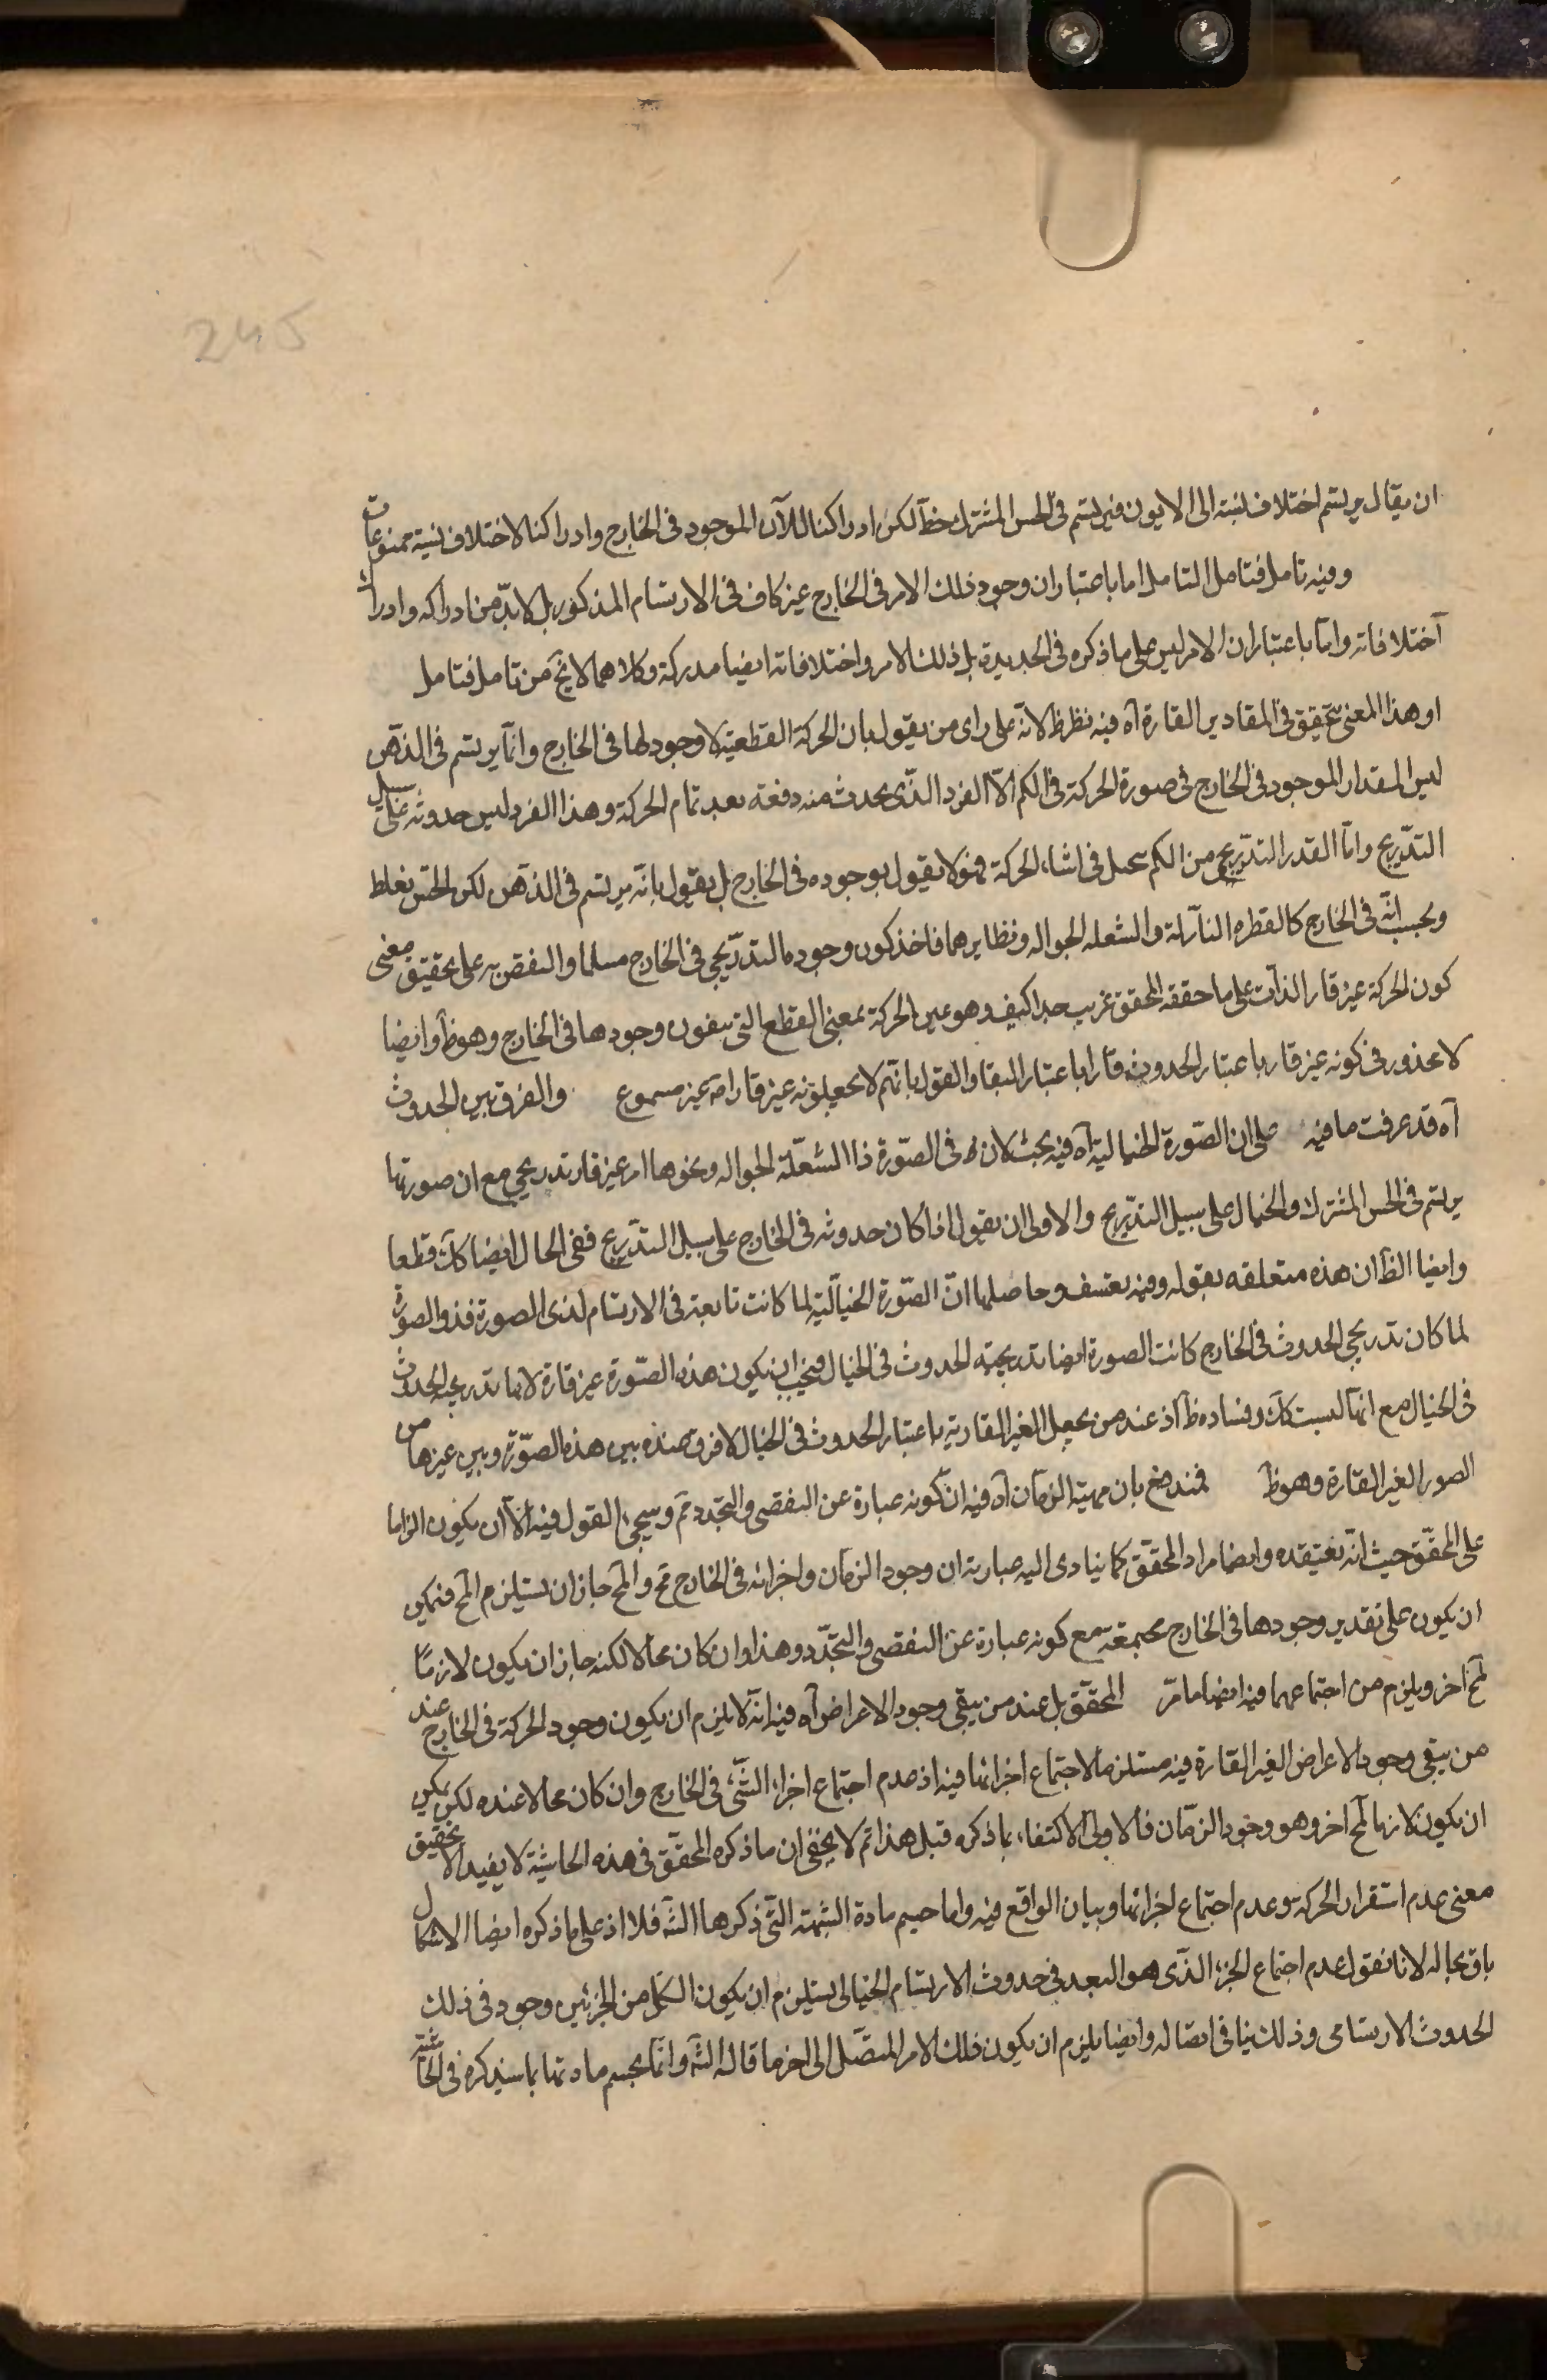 245
ان يقال يرتسم اختلاف نسبته الى الايون فيرتسم فى الحس المشترك خطّاً لكن ادراكنا للآن الموجود فى الخارج وادراكنا لاختلاف نسبته ممنوعات
وفيه تامل فتامل التامل اما باعتبار ان وجود ذلك الامر فى الخارج غير كاف فى الارتسام المذكور بل لابدّ من ادراكه وادراك
اختلافاته وامّا باعتبار ان الامر ليس على ما ذكره فى الجديدة بل ذلك الامر واختلافاته ايضا مدركة وكلاهما لايخ من تامل فتامل
او هذا المعنى تحقيق فى المقادير القارة آه فيه نظر ظ لانّه على راى من يقول بان الحركة القطعية لا وجود لها فى الخارج وانّما يرتسم فى الذهن
ليس المقدار الموجود فى الخارج فى صورة الحركة فى الكم الّا الفرد الذى يحدث منه دفعة بعد تمام الحركة وهذا الفرد ليس حدوثه على سبيل
التدريج وامّا القدر التدريجى من الكم فى اثناء الحركة فهو لا يقول بوجوده فى الخارج بل يقول بانّه يرتسم فى الذهن لكن الحس يغلط
ويحسب انّه فى الخارج كالقطره النازلة والشعله الجواله ونظايرهما فاخذ كون وجودها التدريجى فى الخارج مسلما والنقض به على تحقيق معنى
كون الحركة غير قار الذات على ما حققه المحقق غريب جدا كيف وهو عين الحركة بمعنى القطع التى ينفون وجودها فى الخارج وهو ظ وايضا
لا محذور فى كونه غير قار باعتبار الحدوث قارا باعتبار البقا والقول بانّهم لا يجعلونه غير قار امّ غير مسموع والفرق بين الحدوث
آه قد عرفت ما فيه على ان الصّورة الخيالية آه فيه بحث لان فى الصّورة ذا الشعلة الجواله ونحوها امر غير قار تدريجى مع ان صورتها
يرتسم فى الحس المشترك والخيال على سبيل التدريج والاولى ان يقول اذا كان حدوثه فى الخارج على سبيل التدريج ففى الخيال ايضا كك قطعا
وايضا الظ ان هذه متعلقه بقوله وفيه تعسف وحاصلها انّ الصّورة الخياليّة لما كانت تابعة فى الارتسام لذى الصورة فذو الصورة
لما كان تدريجى الحدوث فى الخارج كانت الصورة ايضا تدريجية الحدوث فى الخيال فيجب ان يكون هذه الصّورة غير قارة لانها تدريجية الحدوث
فى الخيال مع انّها ليست كك وفساده ظ اذ عند من يجعل الغير القارية باعتبار الحدوث فى الخيال لا فرق عنده بين هذه الصّورة وبين غيرها من
الصور الغير القارة وهو ظ فمندفع بان مهية الزمان آه فيه ان كونه عبارة عن التقضى والتجدد ثم وسيجئ القول فيه الّا ان يكون الزاما
على المحقّق حيث انّه يعتقده وايضا مراد المحقّق كما ينادى اليه عبارته ان وجود الزمان واجزائه فى الخارج مح والمح جاز ان يستلزم المح فيمكن
ان يكون على تقدير وجودها فى الخارج مجتمعة مع كونه عبارة عن التقضى والتجدّد وهذا وان كان محالا لكنه جاز ان يكون لازمًا
لمح آخر ويلزم من اجتماعهما فيه ايضا ما مرّ المحقّق بل عند من يبقى وجود الاعراض آه فيه انّه لا يلزم ان يكون وجود الحركة فى الخارج عند
من يبقى وجود الاعراض الغير القارة فيه مستلزما لاجتماع اجزائها فيه اذ عدم اجتماع اجزاء الشّئ فى الخارج وان كان محالا عنده لكن يمكن
ان يكون لازما لمح اخر وهو وجود الزمان فالاولى الاكتفاء بما ذكره قبل هذا ثم لا يخفى ان ما ذكره المحقّق فى هذه الحاشية لا يفيد الا تحقيق
معنى عدم استقرار الحركة وعدم اجتماع اجزائها وبيان الواقع فيه واما حسم مادة الشبهة التى ذكرها الشّه فلا اذ على ما ذكره ايضا الاشكال
باق بحاله لانا نقول عدم اجتماع الجزء الذى هو البعد فى حدوث الارتسام الخيالى يستلزم ان يكون الكل من الجزئين وجود فى ذلك
الحدوث الارتسامى وذلك ينافى اتصاله وايضا يلزم ان يكون ذلك الامر المتصّل الى اخر ما قاله الشّه وانّما يحسم مادتها بما سيذكره فى الحاشية